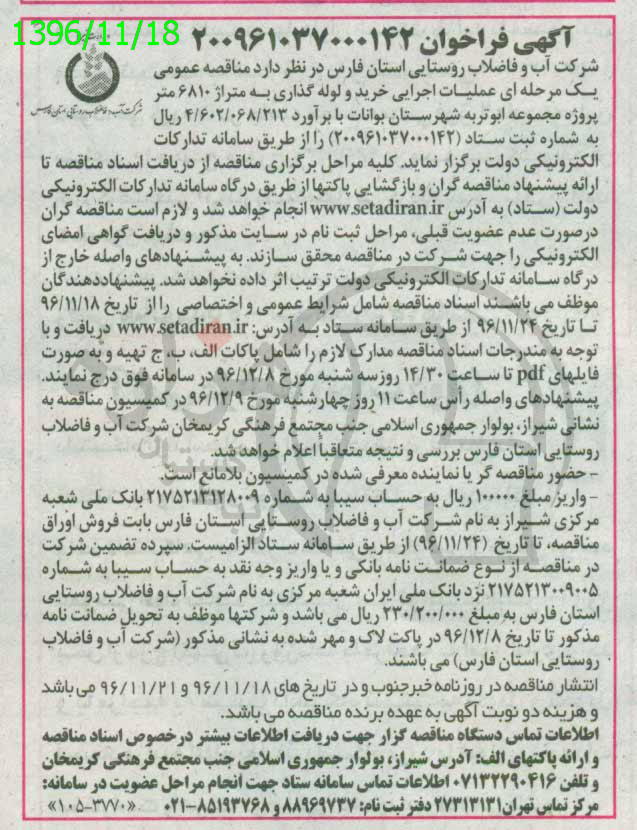 1396/11/18
آگهی فراخوان ۲۰۰۹۶۱۰۳۷۰۰۰۱۴۲
شرکت آب و فاضلاب روستایی استان فارس
شرکت آب و فاضلاب روستایی استان فارس در نظر دارد مناقصه عمومی
یک مرحله ای عملیات اجرایی خرید و لوله گذاری به متراژ ۶۸۱۰ متر
پروژه مجموعه ابوتربه شهرستان بوانات با برآورد ۴/۶۰۲/۰۶۸/۲۱۳ ریال
به شماره ثبت ستاد (۲۰۰۹۶۱۰۳۷۰۰۰۱۴۲) را از طریق سامانه تدارکات
الکترونیکی دولت برگزار نماید. کلیه مراحل برگزاری مناقصه از دریافت اسناد مناقصه تا
ارائه پیشنهاد مناقصه گران و بازگشایی پاکتها از طریق درگاه سامانه تدارکات الکترونیکی
دولت (ستاد) به آدرس www.setadiran.ir انجام خواهد شد و لازم است مناقصه گران
درصورت عدم عضویت قبلی، مراحل ثبت نام در سایت مذکور و دریافت گواهی امضای
الکترونیکی را جهت شرکت در مناقصه محقق سازند. به پیشنهادهای واصله خارج از
درگاه سامانه تدارکات الکترونیکی دولت ترتیب اثر داده نخواهد شد. پیشنهاددهندگان
موظف می باشند اسناد مناقصه شامل شرایط عمومی و اختصاصی را از تاریخ ۹۶/۱۱/۱۸
تا تاریخ ۹۶/۱۱/۲۴ از طریق سامانه ستاد به آدرس: www.setadiran.ir دریافت و با
توجه به مندرجات اسناد مناقصه مدارک لازم را شامل پاکات الف، ب، ج تهیه و به صورت
فایلهای pdf تا ساعت ۱۴/۳۰ روز سه شنبه مورخ ۹۶/۱۲/۸ در سامانه فوق درج نمایند.
پیشنهادهای واصله رأس ساعت ۱۱ روز چهارشنبه مورخ ۹۶/۱۲/۹ در کمیسیون مناقصه به
نشانی شیراز، بولوار جمهوری اسلامی جنب مجتمع فرهنگی کریمخان شرکت آب و فاضلاب
روستایی استان فارس بررسی و نتیجه متعاقباً اعلام خواهد شد.
- حضور مناقصه گر یا نماینده معرفی شده در کمیسیون بلامانع است.
- واریز مبلغ ۱۰۰۰۰۰ ریال به حساب سیبا به شماره ۲۱۷۵۲۱۳۱۲۸۰۰۹ بانک ملی شعبه
مرکزی شیراز به نام شرکت آب و فاضلاب روستایی استان فارس بابت فروش اوراق
مناقصه، تا تاریخ (۹۶/۱۱/۲۴) از طریق سامانه ستاد الزامیست. سپرده تضمین شرکت
در مناقصه از نوع ضمانت نامه بانکی و یا واریز وجه نقد به حساب سیبا به شماره
۲۱۷۵۲۱۳۰۰۹۰۰۵ نزد بانک ملی ایران شعبه مرکزی به نام شرکت آب و فاضلاب روستایی
استان فارس به مبلغ ۲۳۰/۲۰۰/۰۰۰ ریال می باشد و شرکتها موظف به تحویل ضمانت نامه
مذکور تا تاریخ ۹۶/۱۲/۸ در پاکت لاک و مهر شده به نشانی مذکور (شرکت آب و فاضلاب
روستایی استان فارس) می باشند.
انتشار مناقصه در روزنامه خبرجنوب و در تاریخ های ۹۶/۱۱/۱۸ و ۹۶/۱۱/۲۱ می باشد
و هزینه دو نوبت آگهی به عهده برنده مناقصه می باشد.
اطلاعات تماس دستگاه مناقصه گزار جهت دریافت اطلاعات بیشتر درخصوص اسناد مناقصه
و ارائه پاکتهای الف: آدرس شیراز، بولوار جمهوری اسلامی جنب مجتمع فرهنگی کریمخان
و تلفن ۰۷۱۳۲۲۹۰۴۱۶ اطلاعات تماس سامانه ستاد جهت انجام مراحل عضویت در سامانه:
مرکز تماس تهران ۲۷۳۱۳۱۳۱ دفتر ثبت نام: ۸۸۹۶۹۷۳۷ و ۸۵۱۹۳۷۶۸-۰۲۱ «۱۰۵-۳۷۷۰»